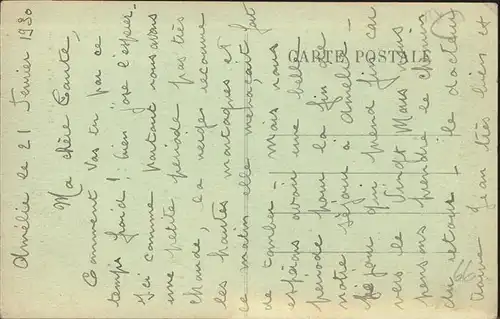 Amélie le 21 Fevrier 1930
Ma chère Tante,
Comment vas tu par ce
temps froid ! bien j'ose l'espérer.
Ici comme partout nous avons
une petite période pas très
chaude, la neige recouvre
les hautes montagnes et
ce matin elle menaçait fort
de tomber — mais nous
espérons avoir une belle
période pour la fin de
notre séjour à Amélie —
séjour qui prend fin car
vers le vingt Mars nous
pensons prendre le chemin
du retour — le docteur
trouve Jean très bien et
CARTE POSTALE
66